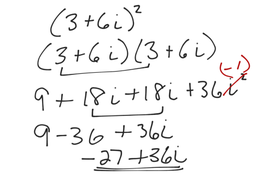 (3+6i)²
(3+6i)(3+6i)
(-1)
9 + 18i + 18i + 36i²
9 - 36 + 36i
-27 + 36i